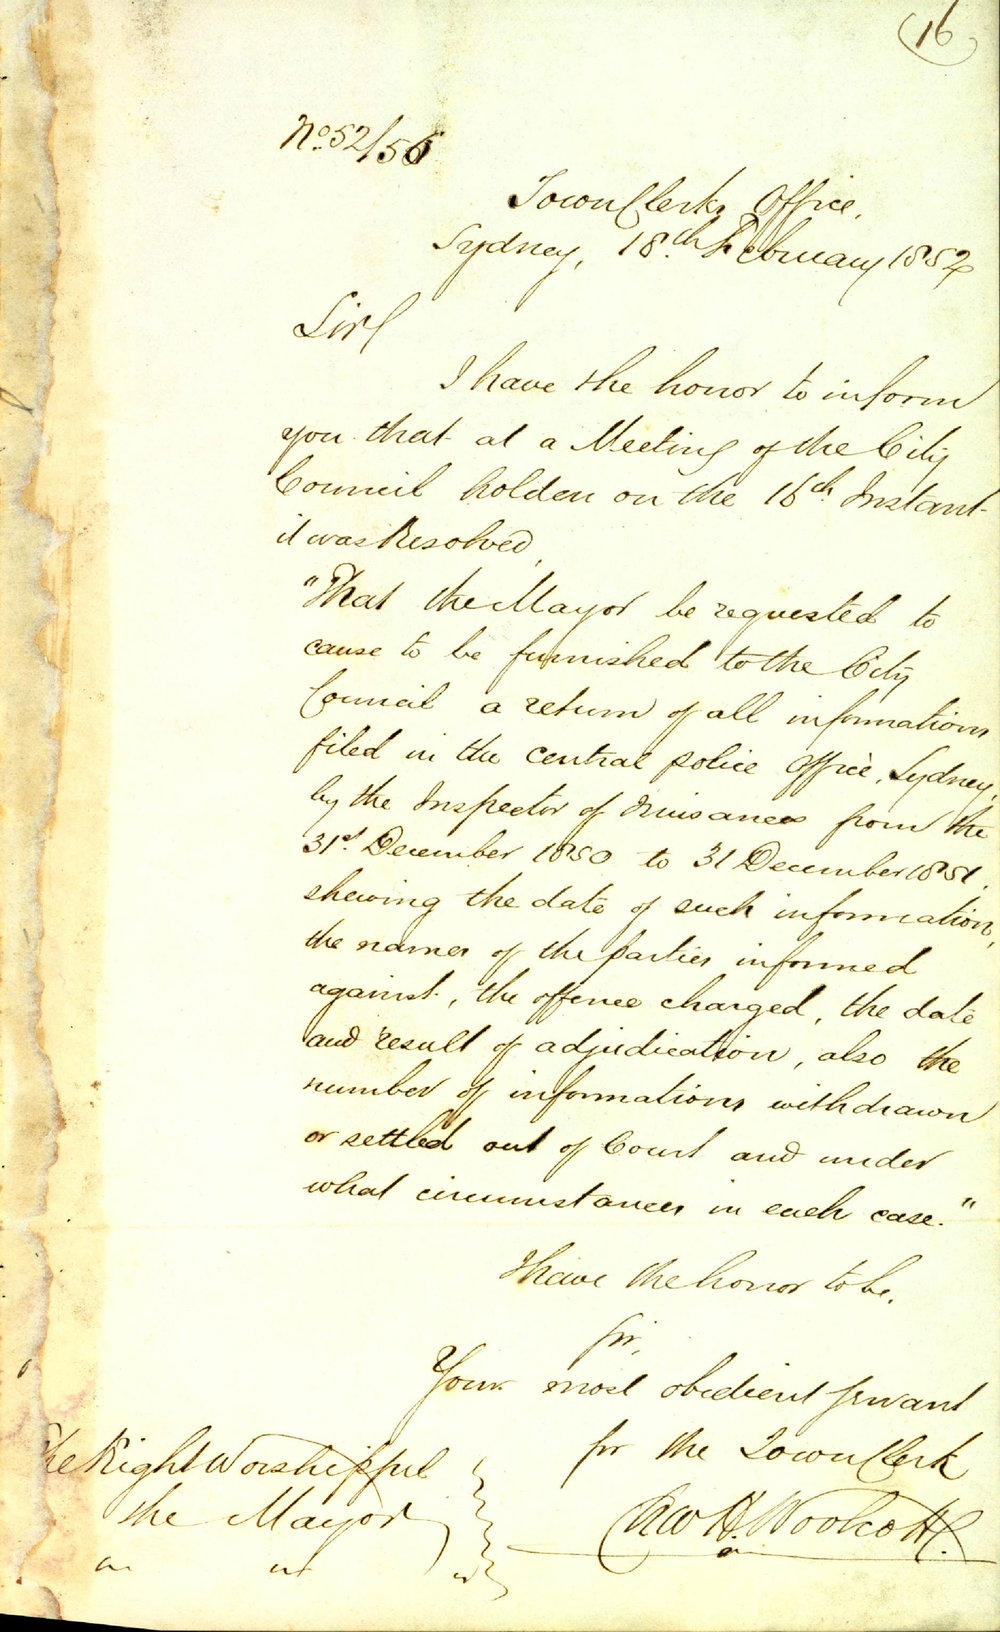 (16)
No. 52/56
Town Clerks Office,
Sydney, 18th February 1852
Sir/
I have the honor to inform
you that at a Meeting of the City
Council holden on the 16th Instant
it was Resolved,
"That the Mayor be requested to
cause to be furnished to the City
Council a return of all informations
filed in the central police Office, Sydney,
by the Inspector of Nuisances from the
31st December 1850 to 31 December 1851,
shewing the date of such information,
the names of the parties informed
against, the offence charged, the date
and result of adjudication, also the
number of informations withdrawn
or settled out of Court and under
what circumstances in each case."
I have the honor to be,
Sir,
Your most obedient servant
for the Town Clerk
Chas H. Woolcott.
The Right Worshipful
the Mayor